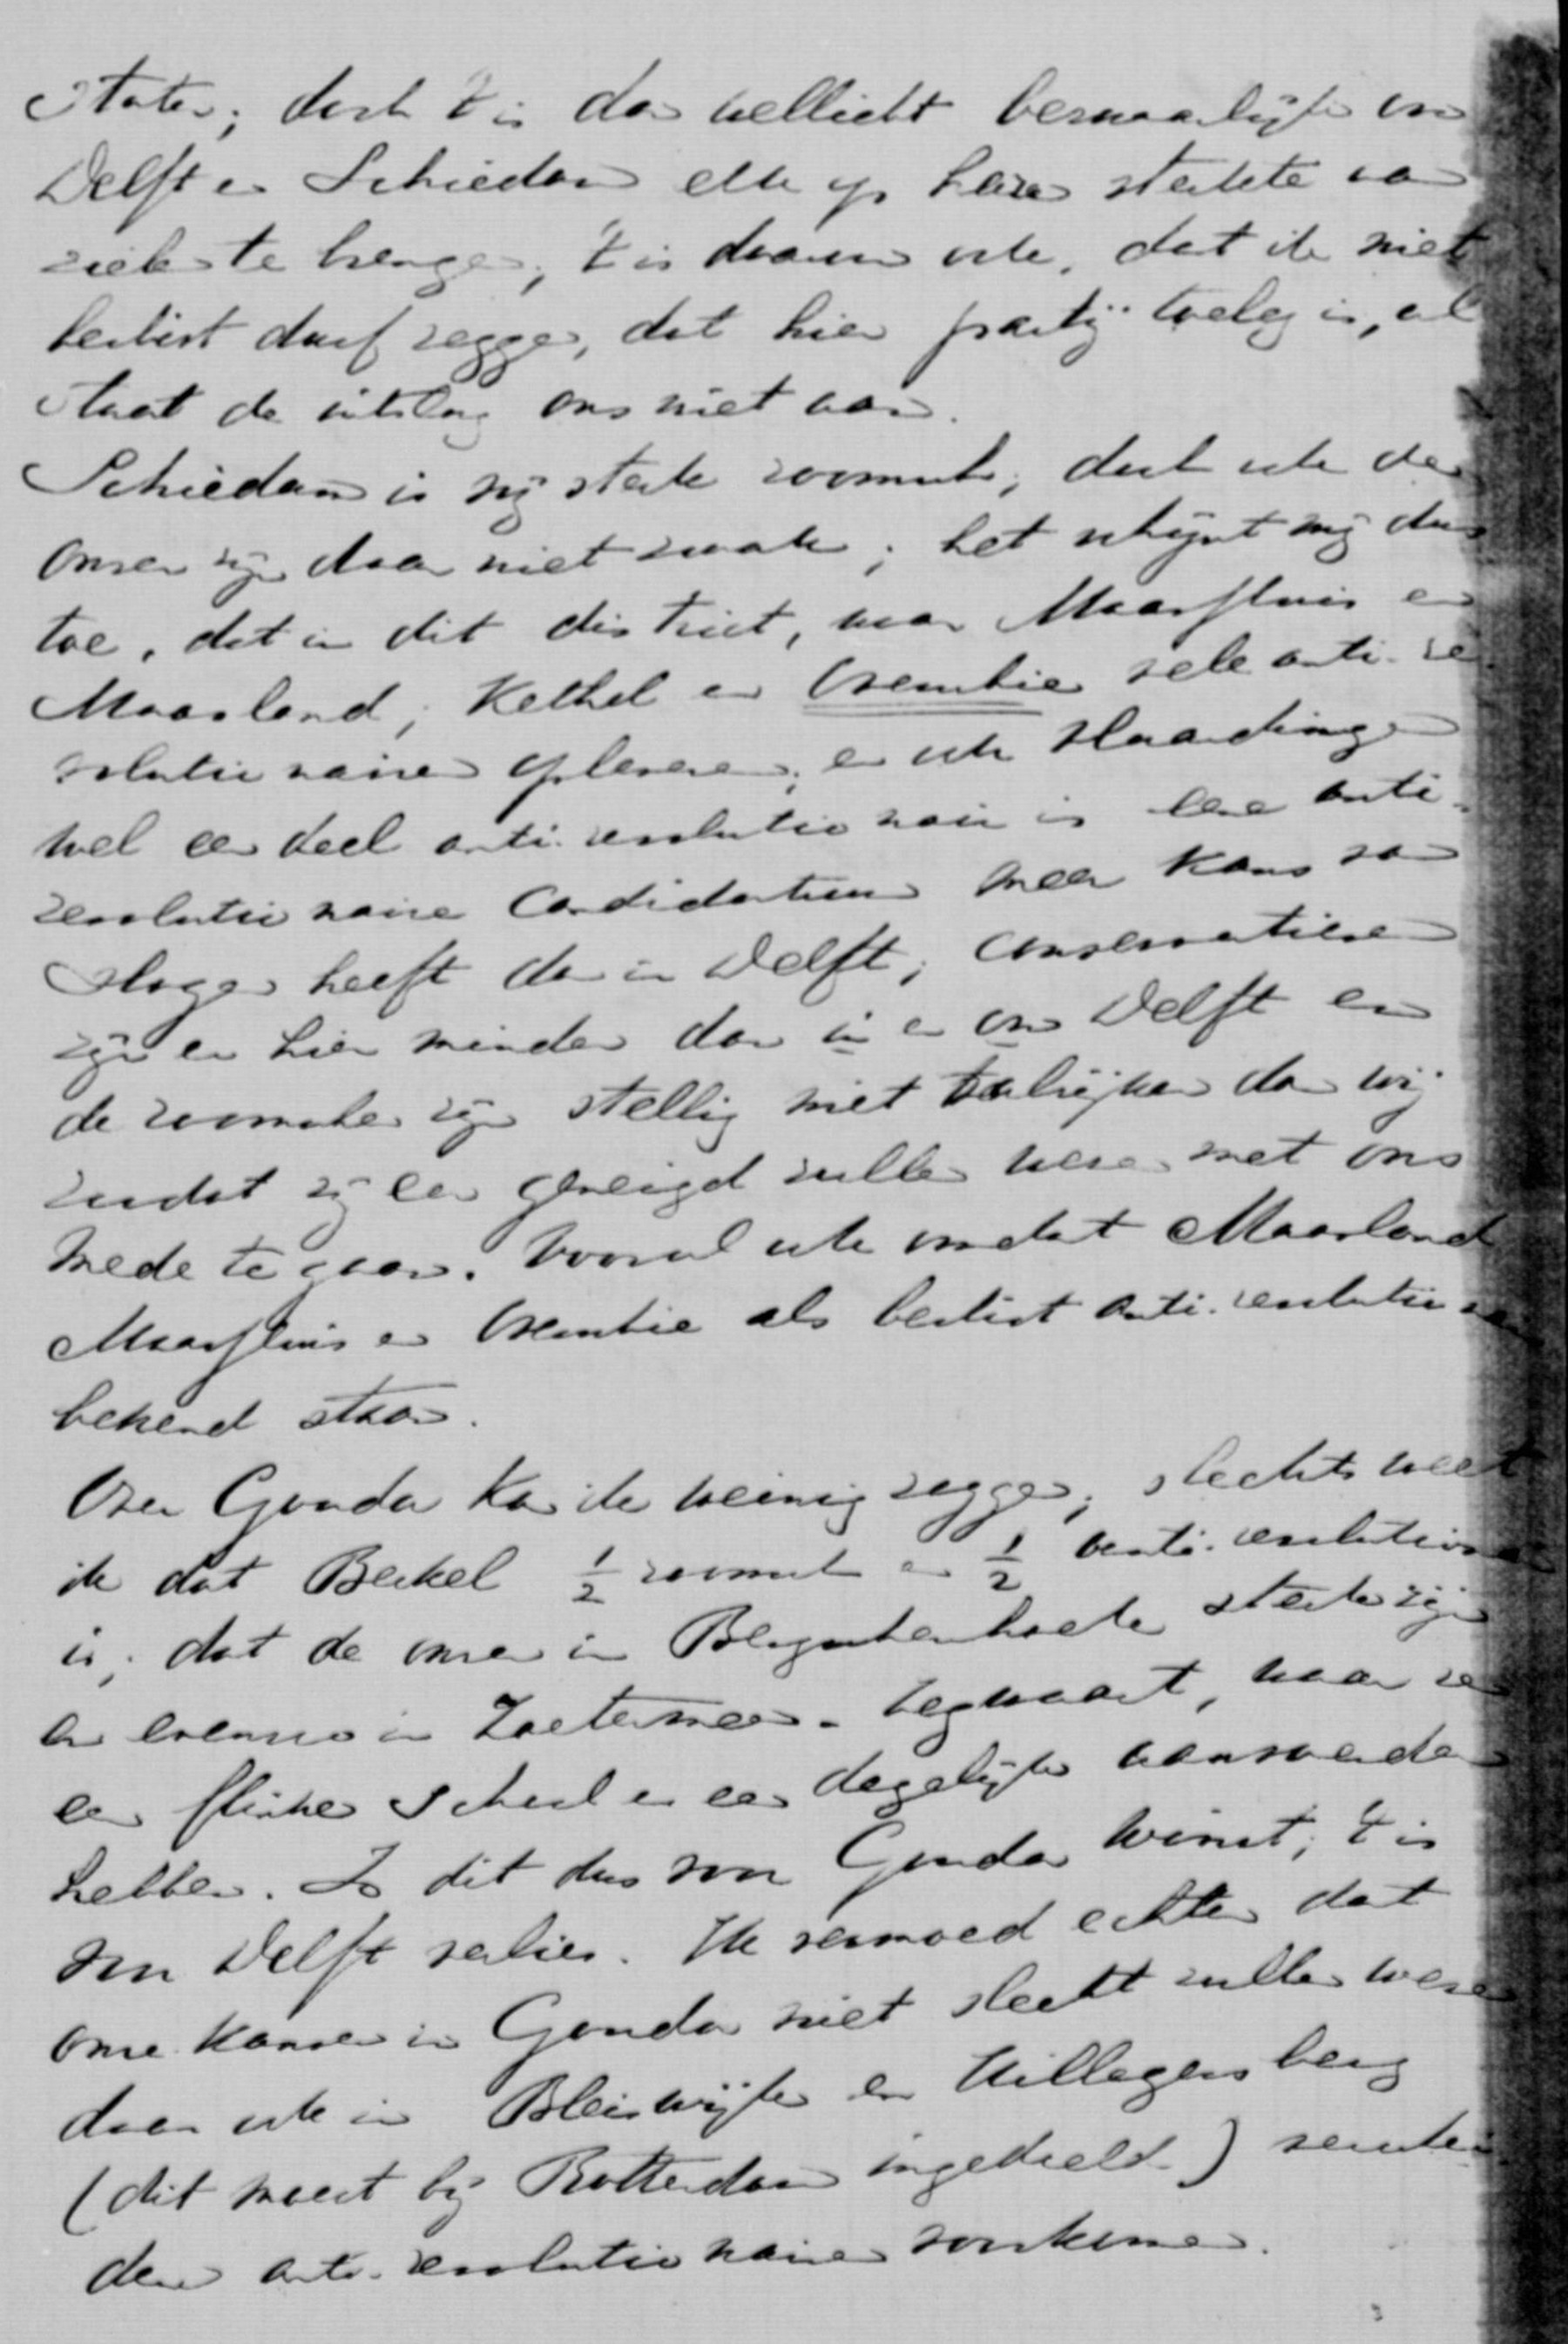 Staten; doch 't is dan wellicht bezwaarlijk om
Delft en Schiedam elk op hare sterkte van
zielen te brengen; 't is daarom ook, dat ik niet
beslist durf zeggen, dat hier partij toeleg is, al
staat de uitslag ons niet aan.
Schiedam is vrij sterk roomsch; doch ook de
onzen zijn daar niet zwak; het schijnt mij dus
toe, dat in dit district, waar Maassluis en
Maasland, Kethel en Overschie vele anti-re-
volutionairen opleveren, en ook Vlaardingen
wel een deel anti-revolutionair is eene anti-
revolutionaire Candidatuur meer kans van
slagen heeft dan in Delft; conservatieven
zijn er hier minder dan in en om Delft en
de roomschen zijn stellig niet talrijker dan wij
zoodat zij eer geneigd zullen wezen met ons
mede te gaan. Vooral ook omdat Maasland
Maassluis en Overschie als beslist anti-revolutionair
bekend staan.
Over Gouda kan ik weinig zeggen; slechts weet
ik dat Berkel ½ roomsch en ½ anti-revolutionair
is; dat de onzen in Bergschenhoek sterk zijn
en evenzoo in Zoetermeer-Zegwaart, waar ze
een flinke School en een degelijke aanvoerder
hebben. Is dit dus voor Gouda winst; 't is
voor Delft verlies. Ik vermoed echter dat
onze kansen in Gouda niet slecht zullen wezen
daar ook in Bleiswijk en Hillegersberg
(dit moest bij Rotterdam ingedeeld)
den anti-revolutionairen voorkomen.